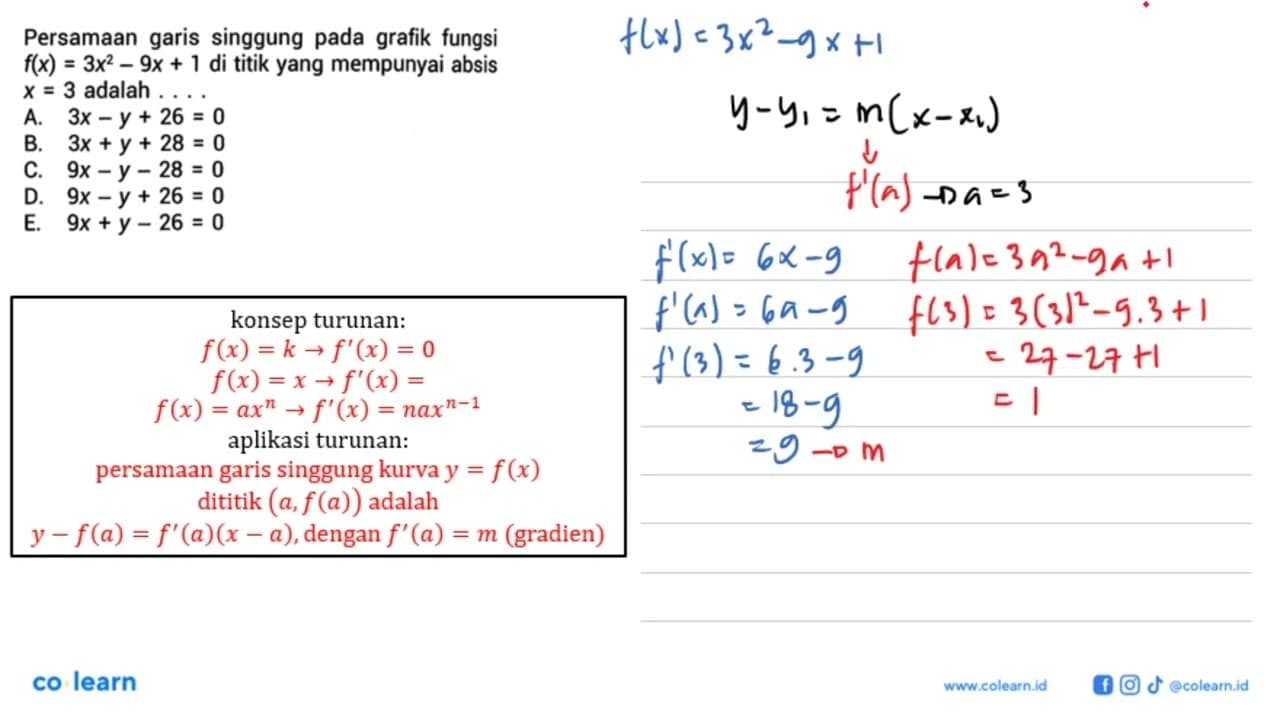 Persamaan garis singgung pada grafik fungsi
f(x) = 3x² – 9x + 1 di titik yang mempunyai absis
x = 3 adalah . . . .
A. 3x – y + 26 = 0
B. 3x + y + 28 = 0
C. 9x – y – 28 = 0
D. 9x – y + 26 = 0
E. 9x + y – 26 = 0
konsep turunan:
f(x) = k → f'(x) = 0
f(x) = x → f'(x) =
f(x) = axⁿ → f'(x) = naxⁿ⁻¹
aplikasi turunan:
persamaan garis singgung kurva y = f(x)
dititik (a, f(a)) adalah
y – f(a) = f'(a)(x – a), dengan f'(a) = m (gradien)
f(x) = 3x² – 9x + 1
y – y₁ = m(x – x₁)
↓
f'(a) → a = 3
f'(x) = 6x – 9
f'(a) = 6a – 9
f'(3) = 6.3 – 9
= 18 – 9
= 9 → m
f(a) = 3a² – 9a + 1
f(3) = 3(3)² – 9.3 + 1
= 27 – 27 + 1
= 1
co learn
www.colearn.id
@colearn.id